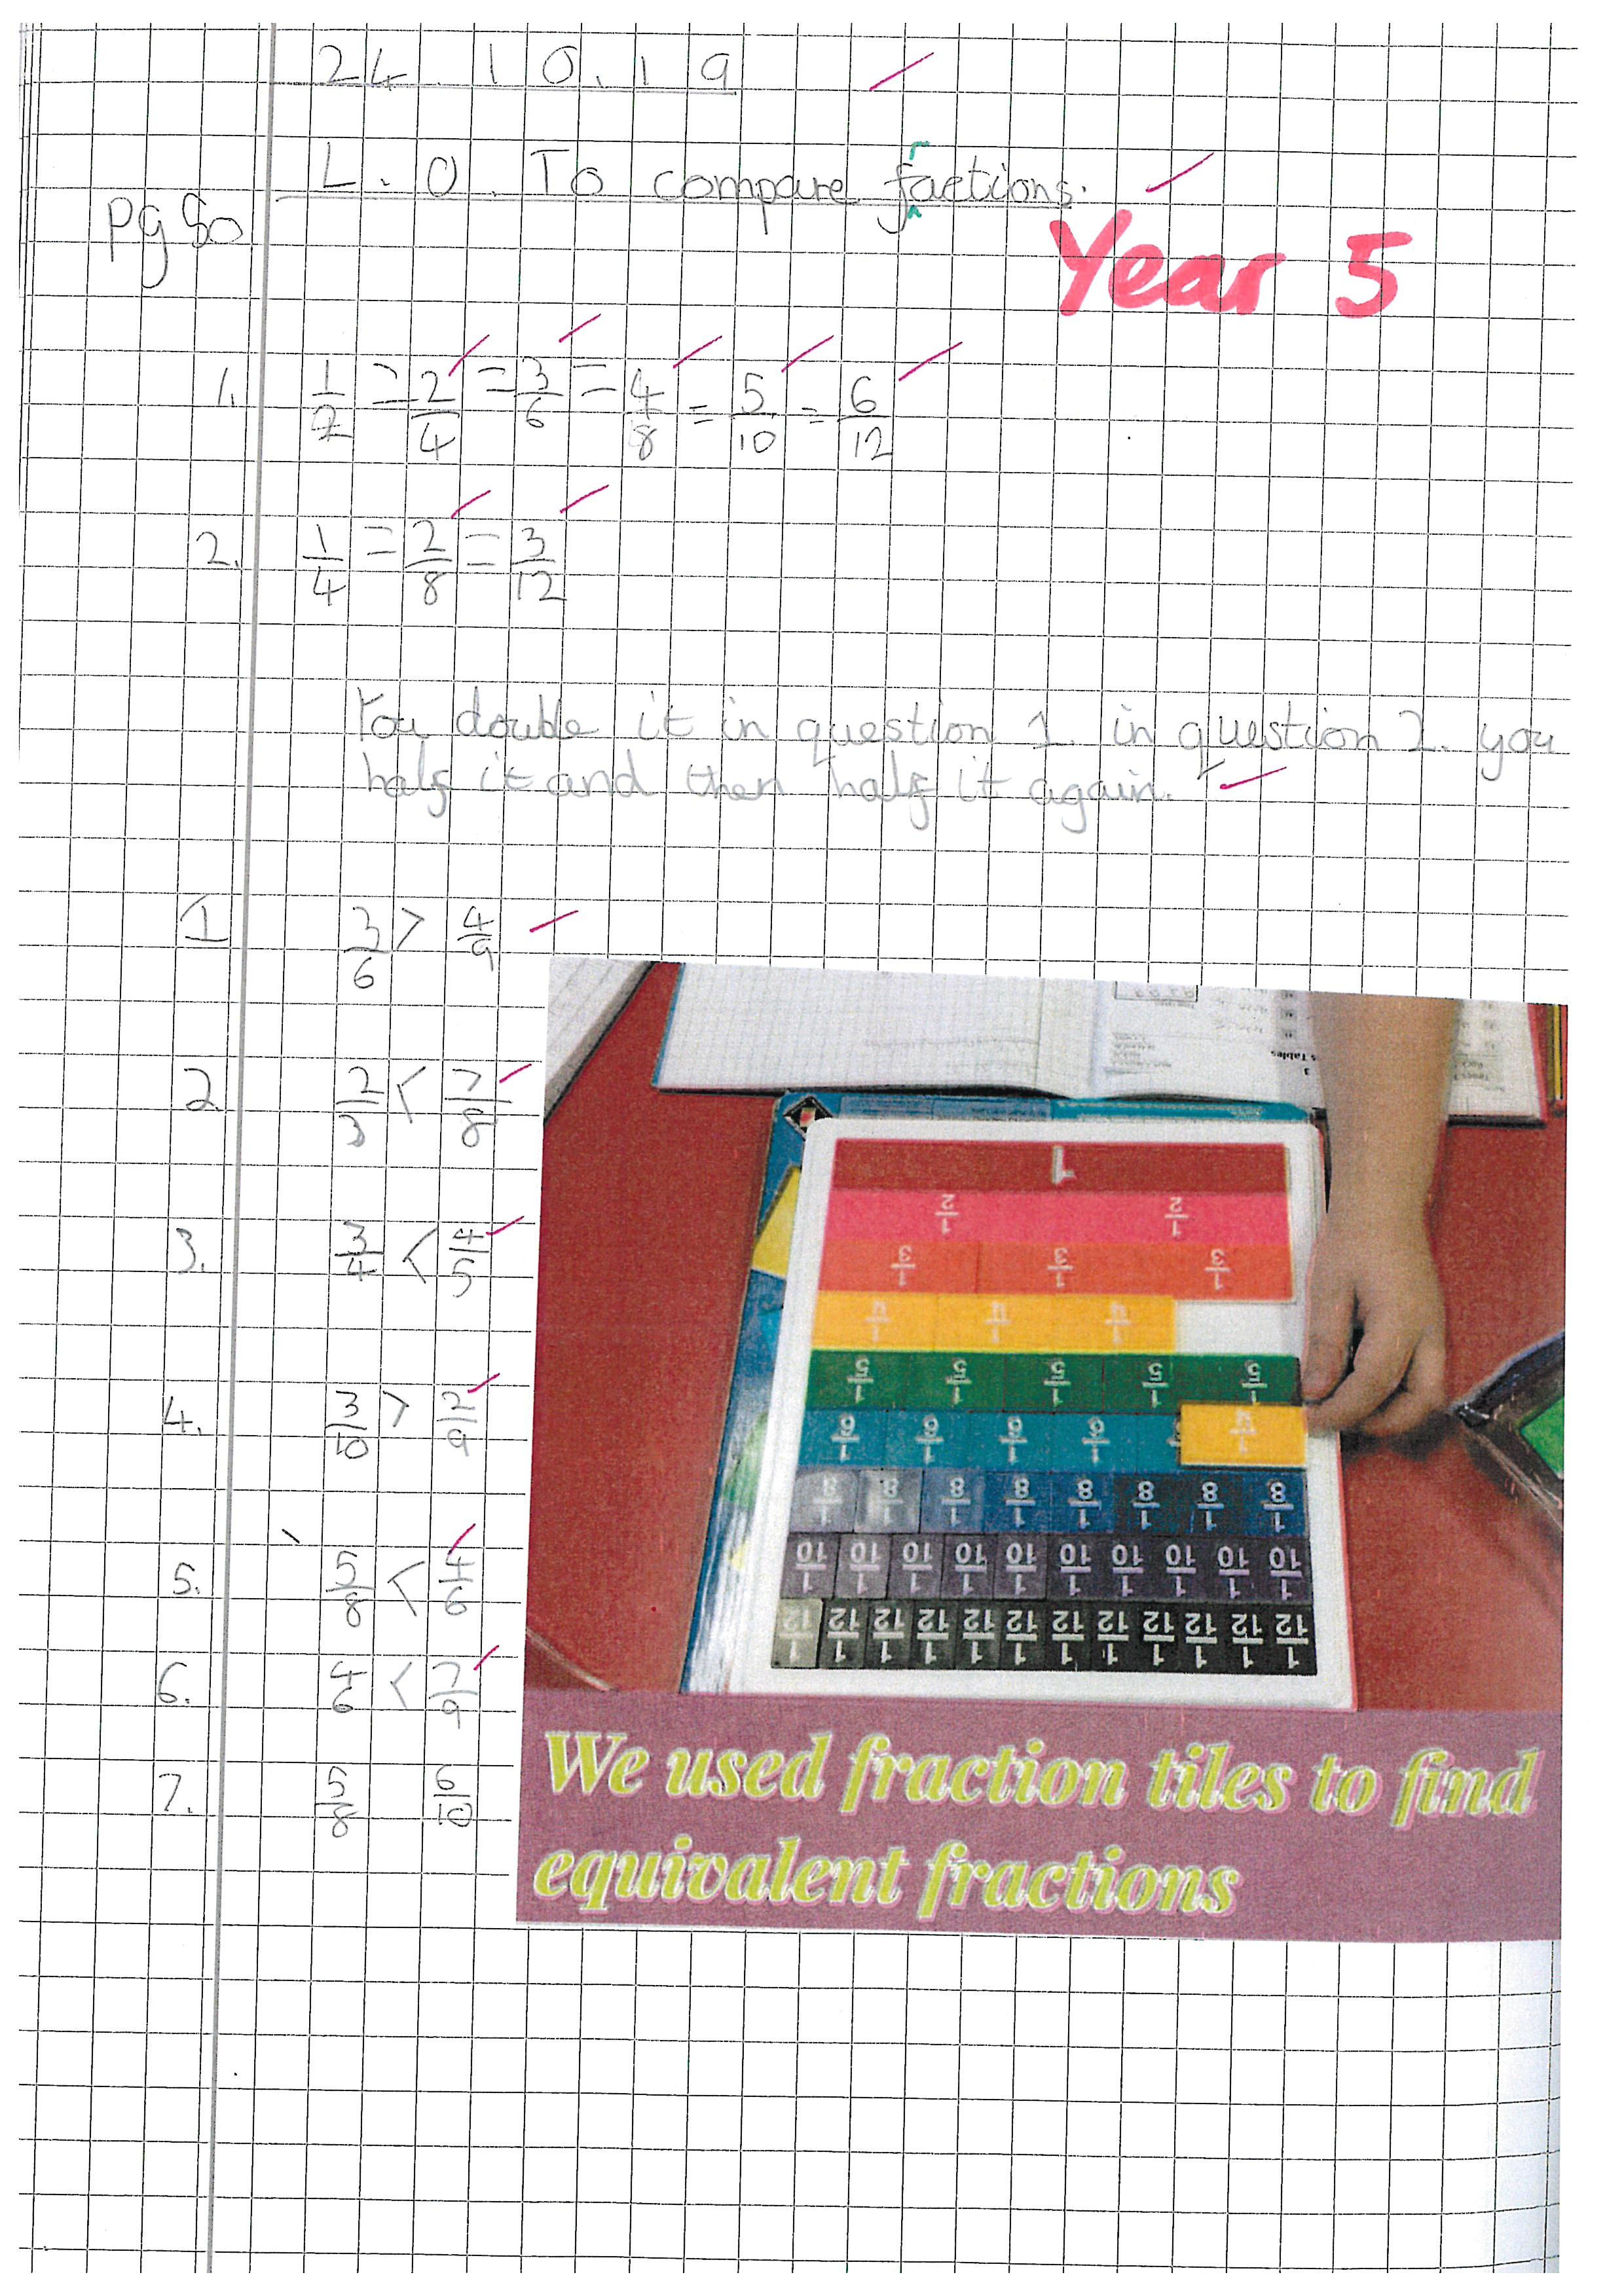 24.10.19
L.O. To compare factions.
r
pg 80
Year 5
1. 1/2 = 2/4 = 3/6 = 4/8 = 5/10 = 6/12
2. 1/4 = 2/8 = 3/12
You double it in question 1. in question 2. you
half it and then half it again.
1 3/6 > 4/9
2. 2/3 < 7/8
3. 3/4 < 4/5
4. 3/10 > 2/9
5. 5/8 < 4/6
6. 4/6 < 7/9
7. 5/8 6/10
s Tables
3
1
1/2 1/2
1/3 1/3 1/3
1/4 1/4 1/4
1/5 1/5 1/5 1/5 1/5
1/6 1/6 1/6 1/6 1/4
1/8 1/8 1/8 1/8 1/8 1/8 1/8 1/8
1/10 1/10 1/10 1/10 1/10 1/10 1/10 1/10 1/10 1/10
1/12 1/12 1/12 1/12 1/12 1/12 1/12 1/12 1/12 1/12 1/12 1/12
We used fraction tiles to find
equivalent fractions